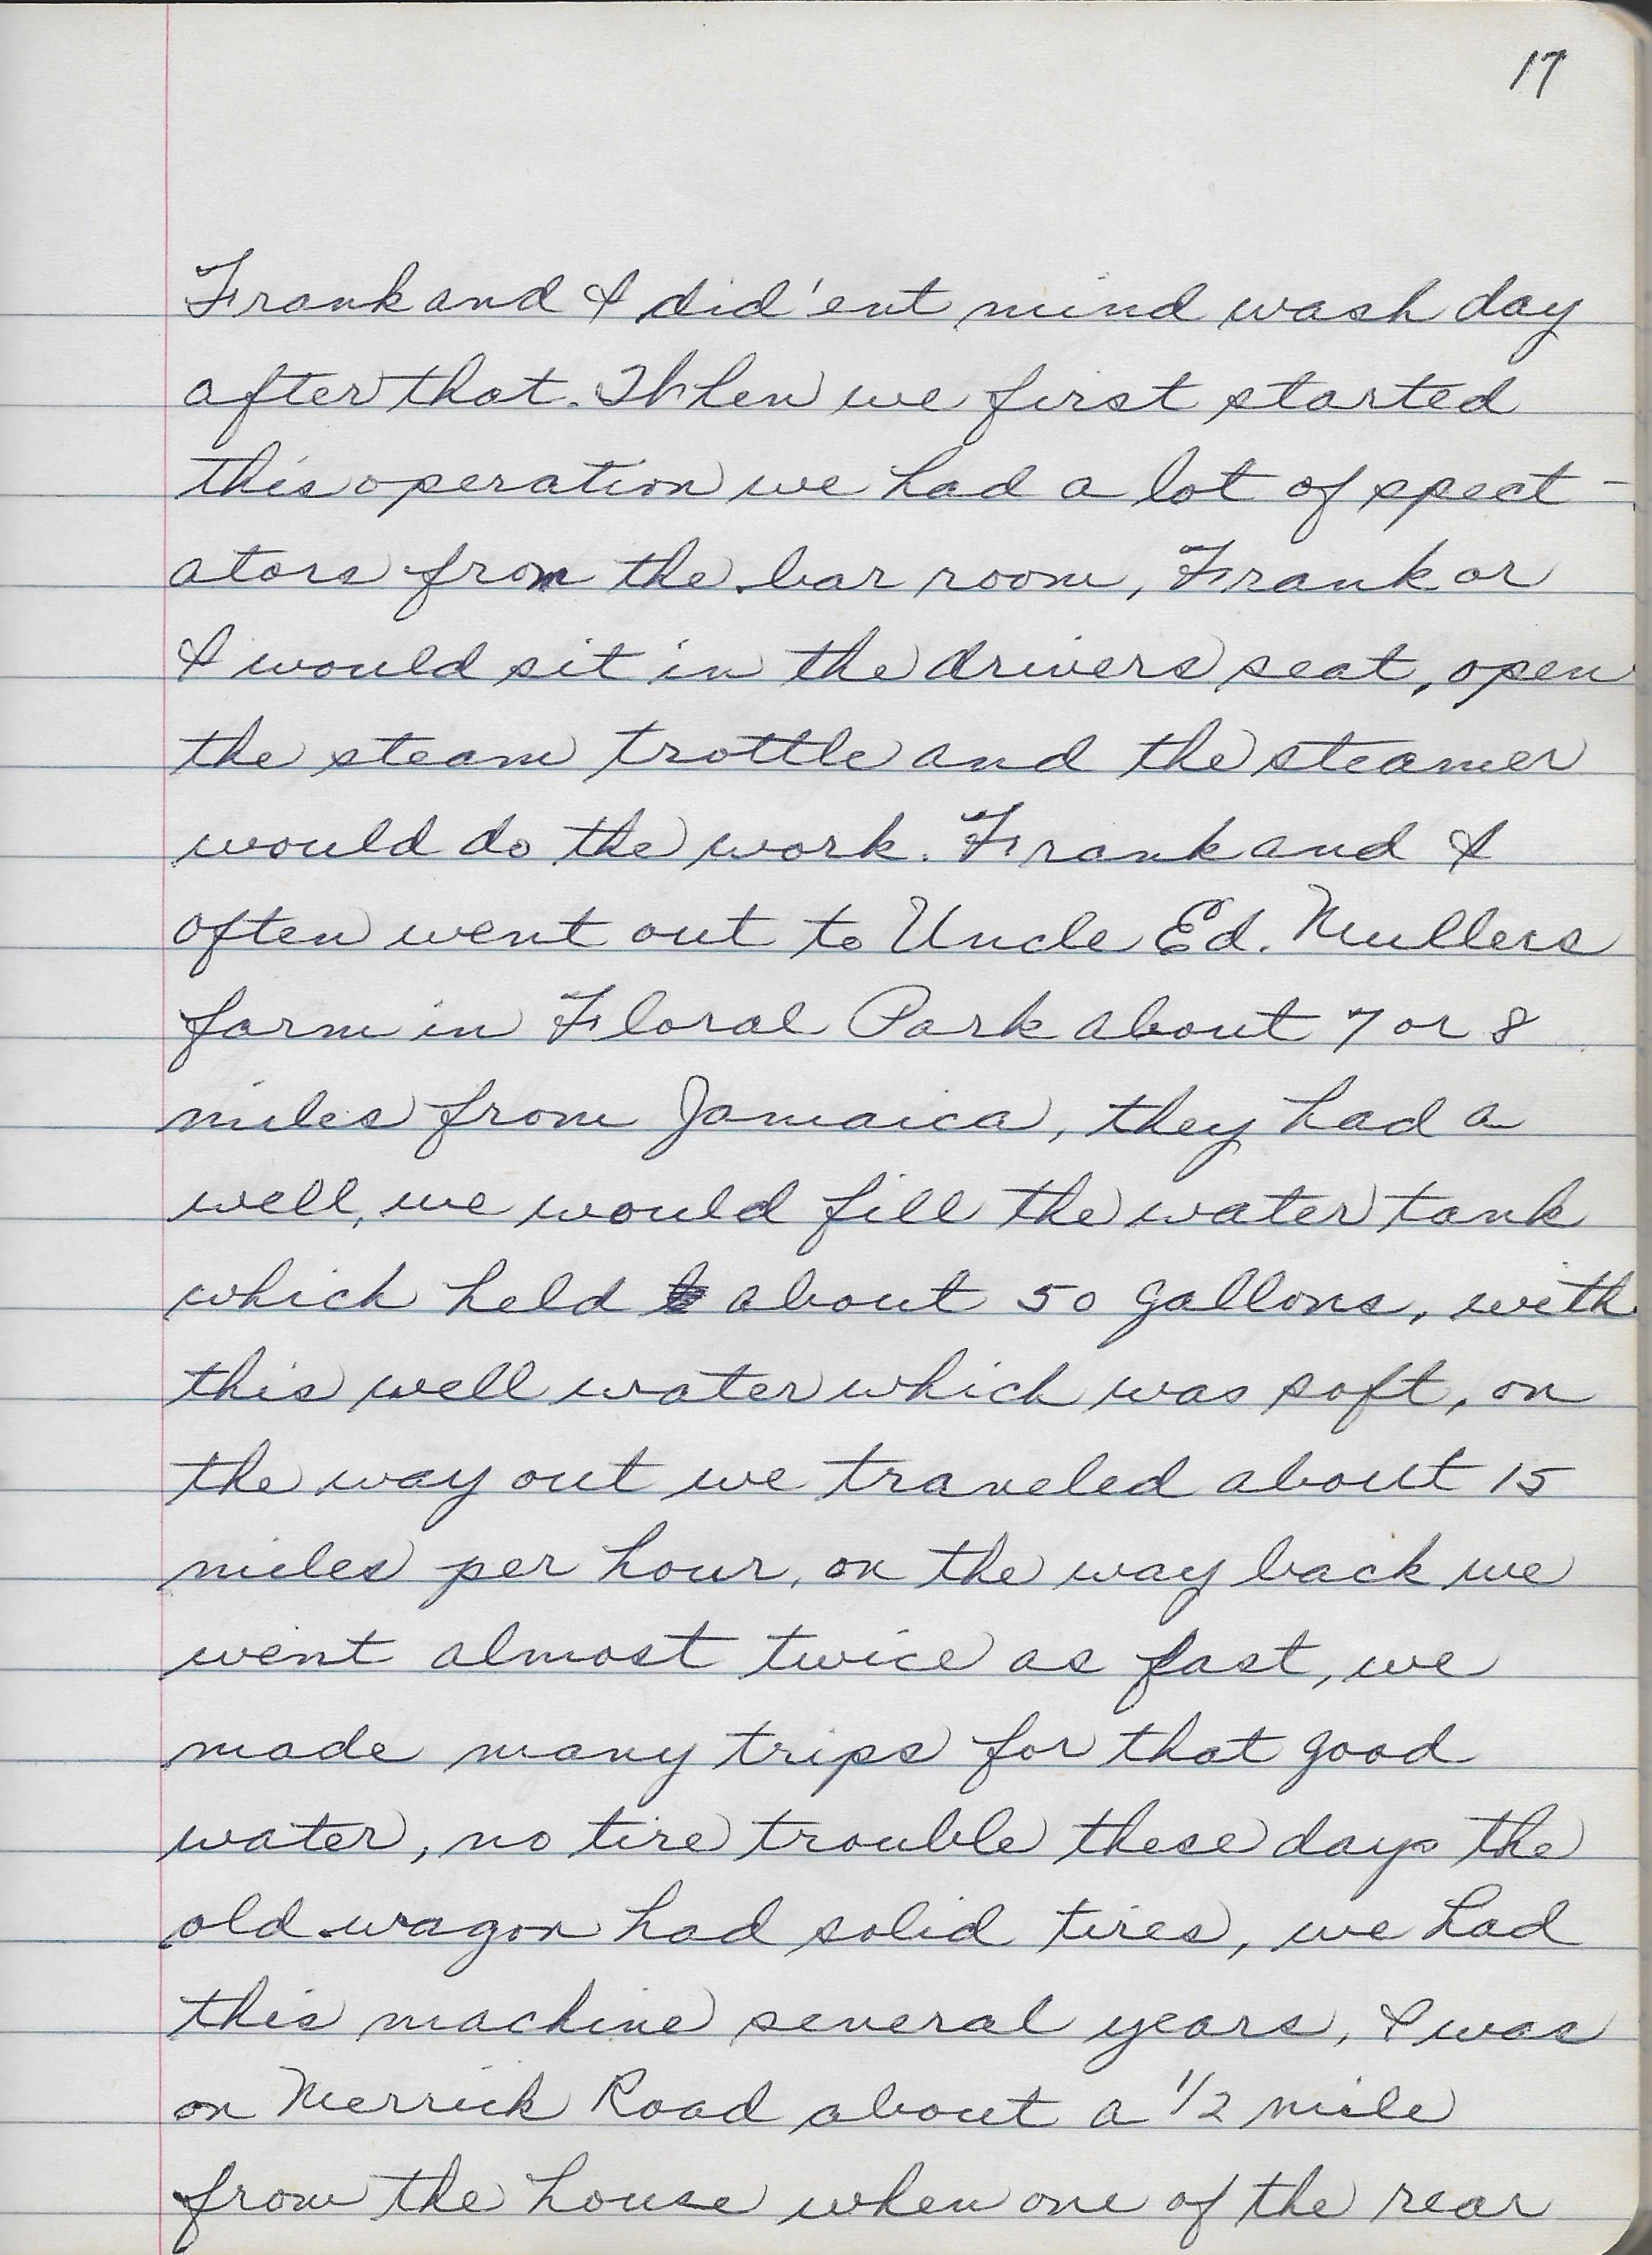 17
Frank and I did'ent mind wash day
after that. When we first started
this operation we had a lot of spect-
ators from the bar room, Frank or
I would sit in the drivers seat, open
the steam trottle and the steamer
would do the work. Frank and I
often went out to Uncle Ed. Mullers
farm in Floral Park about 7 or 8
miles from Jamaica, they had a
well, we would fill the water tank
which held about 50 gallons, with
this well water which was soft, on
the way out we traveled about 15
miles per hour, on the way back we
went almost twice as fast, we
made many trips for that good
water, no tire trouble these days the
old wagon had solid tires, we had
this machine several years, I was
on Merrick Road about a 1/2 mile
from the house when one of the rear